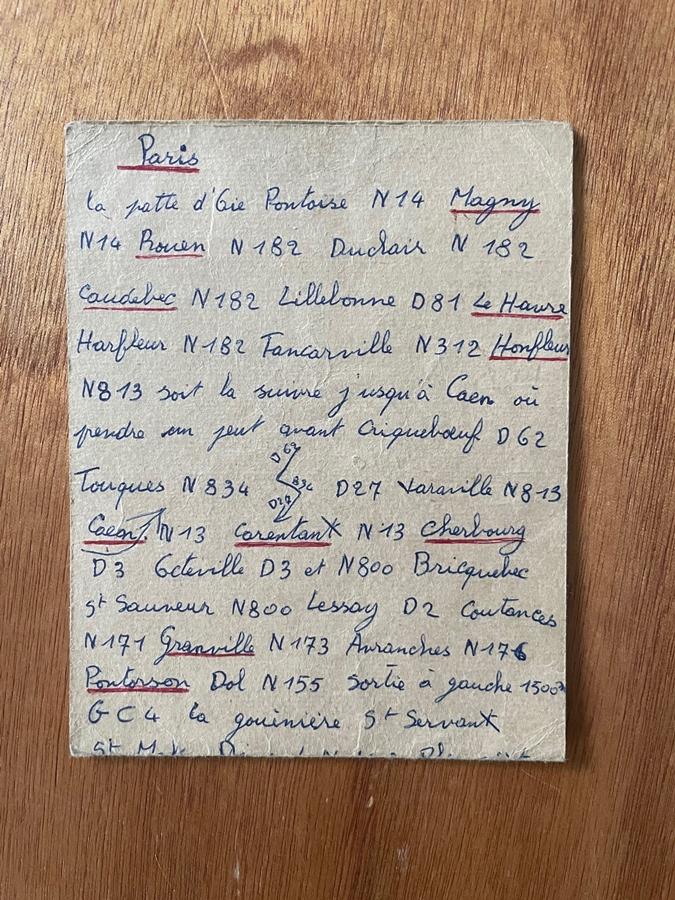 Paris
la patte d'Oie Pontoise N14 Magny
N14 Rouen N182 Duclair N 182
Caudebec N182 Lillebonne D81 Le Havre
Harfleur N182 Tancarville N312 Honfleur
N813 soit la suivre jusqu'à Caen où
prendre un peut avant Criquebœuf D62
D62
834
D27
Touques N834 D27 Varaville N813
Caen N13 Carentan N13 Cherbourg
D3 Octeville D3 et N800 Bricquebec
St Sauveur N800 Lessay D2 Coutances
N171 Granville N173 Avranches N176
Pontorson Dol N155 Sortie à gauche 1500m
GC4 la gouinière St Servan
St